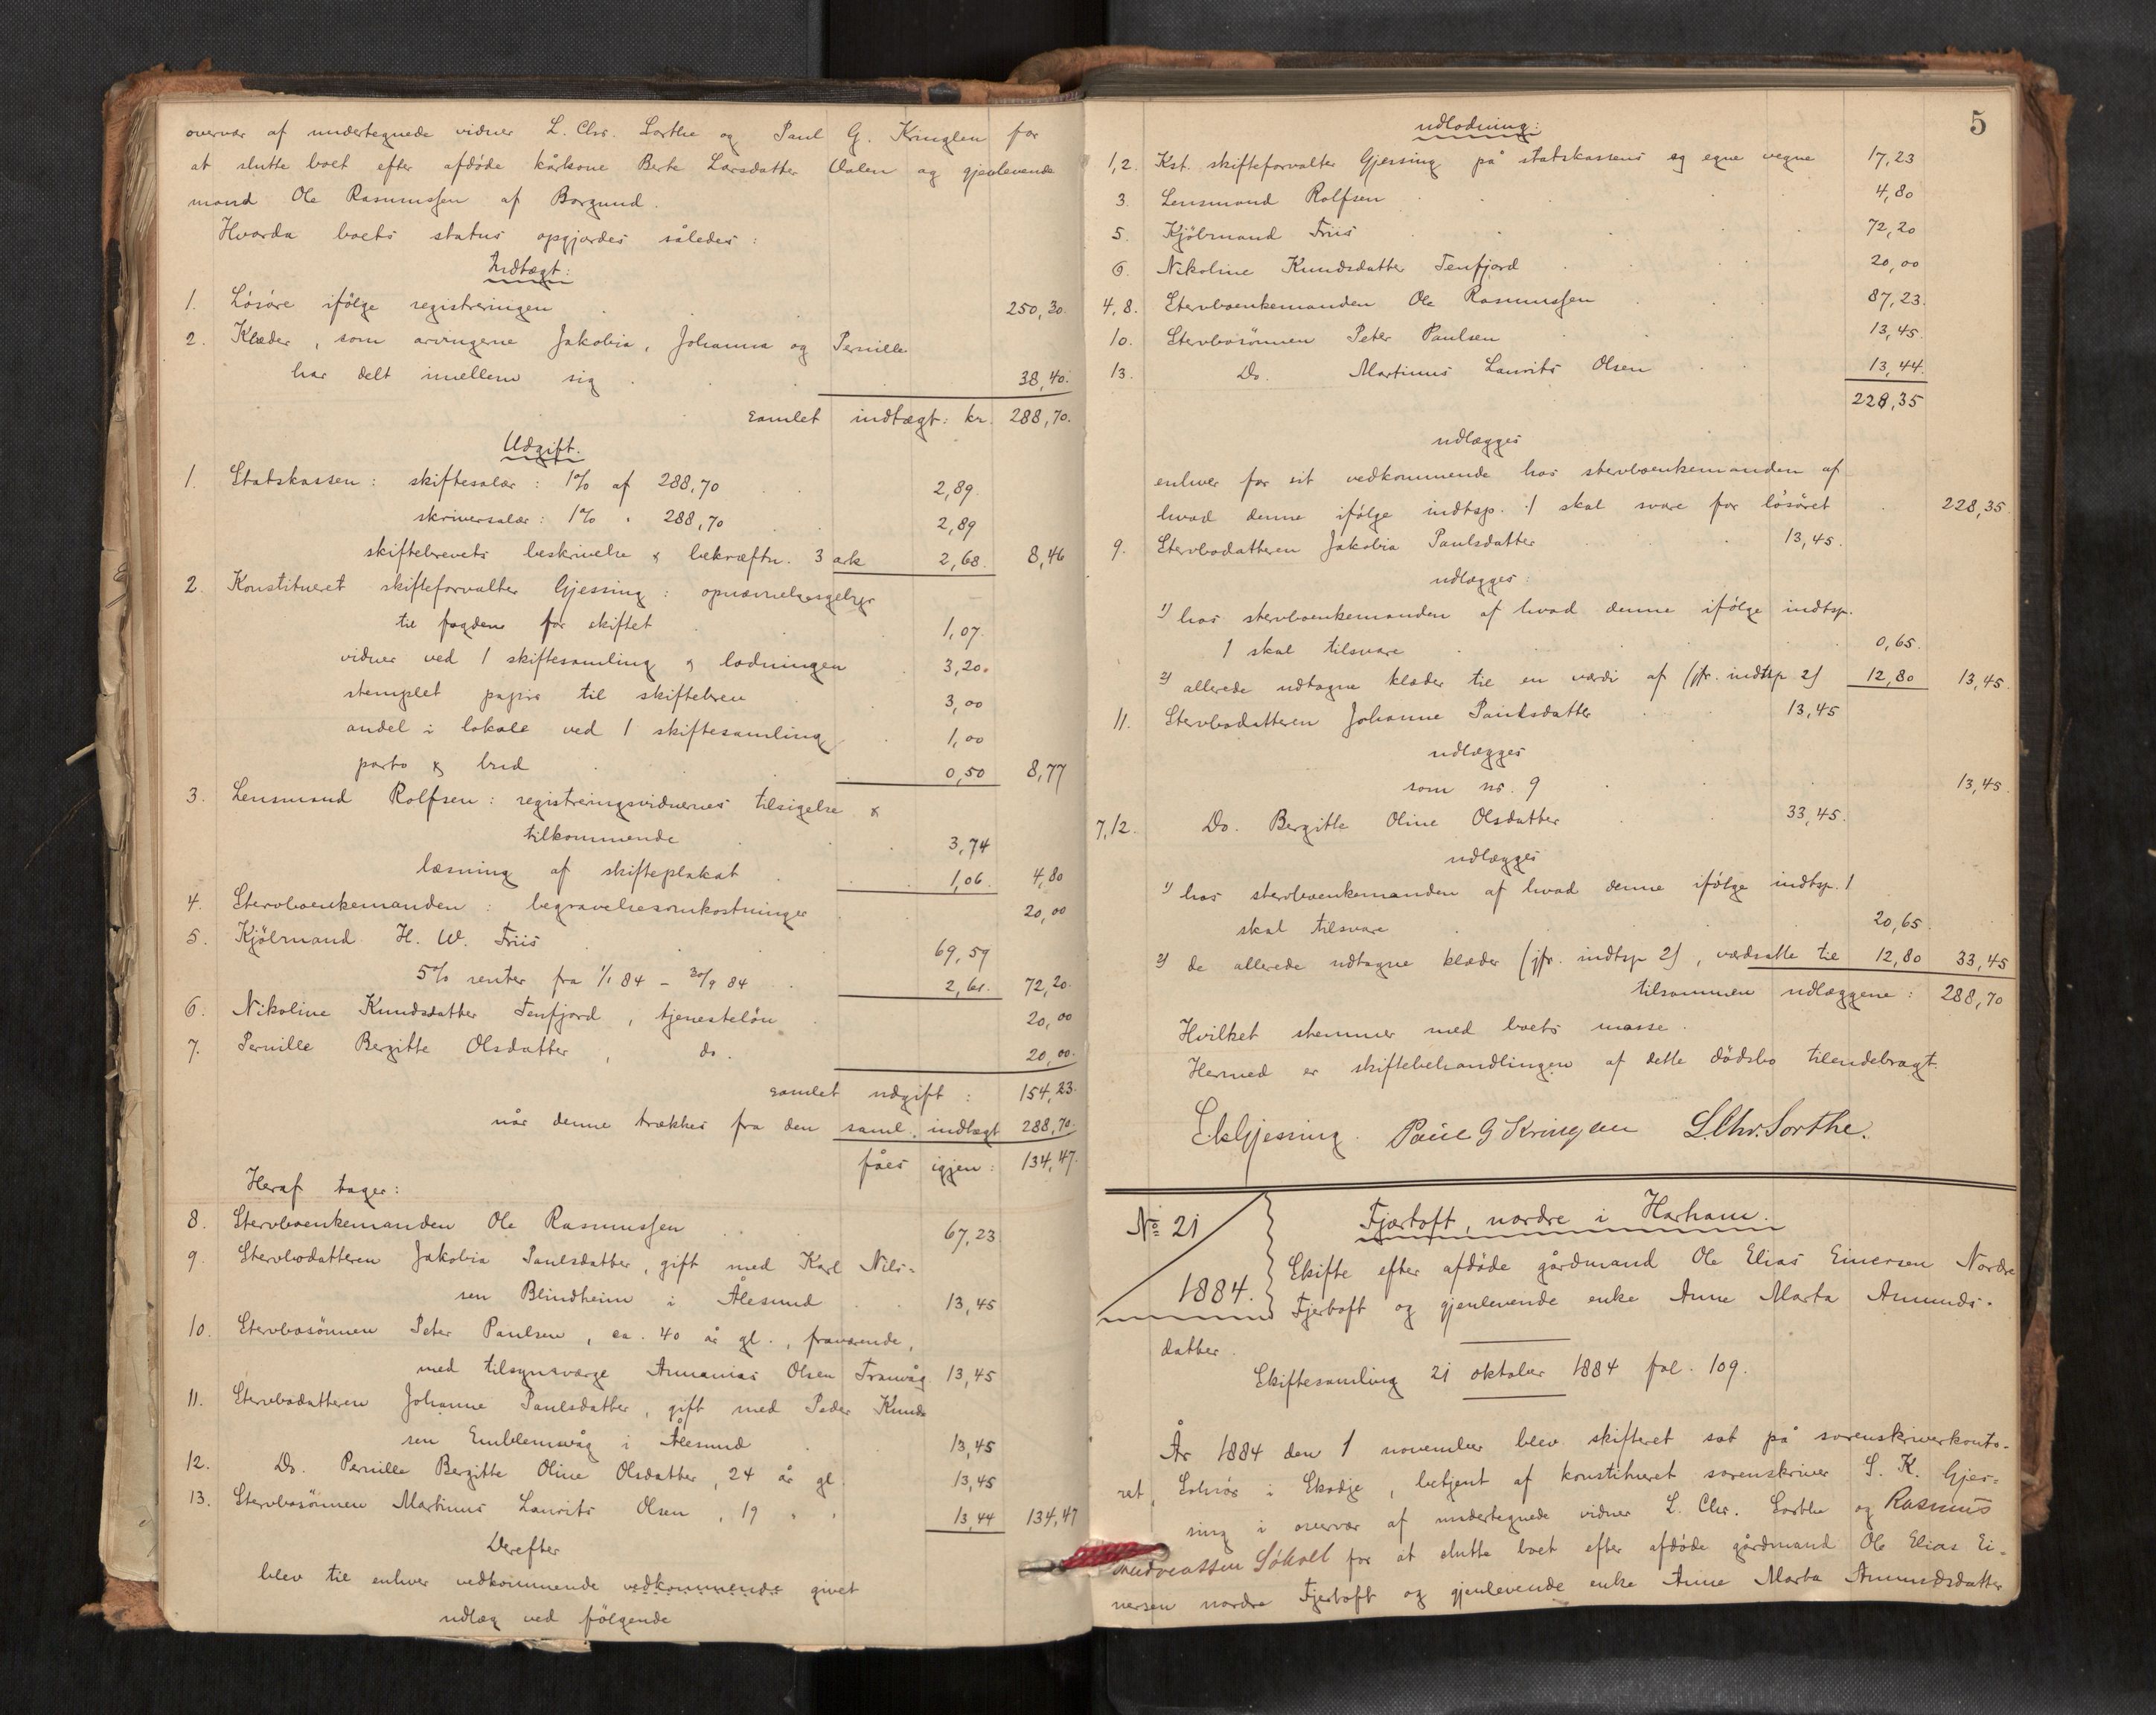 overvær af undertegnede vidner L. Chr. Sorthe og Paul G. Kringlen for
at slutte boet efter afdöde kårkone Berte Larsdatter Valen og gjenlevende
mand Ole Rasmussen af Borgund.
Hvorda boets status opgjordes således:
Indtægt:
1. Lösöre ifölge registreringen 250,30.
2. Klæder, som arvingerne Jakobia, Johanna og Pernille
har delt imellem sig 38,40.
samlet indtægt: kr. 288,70.
Udgift.
1. Statskassen: skiftesalær: 1% af 288,70 2,89.
skriversalær: 1% " 288,70 2,89
skiftebrevets beskrivelse & bekræftn. 3 ark 2,68. 8,46
2. Konstitueret skifteforvalter Gjessing: opnævnelsesgebyr
til fogden for skiftet 1,07.
vidner ved 1 skiftesamling & lodningen 3,20.
stemplet papir til skiftebrev 3,00
andel i lokale ved 1 skiftesamling 1,00
porto & bud 0,50 8,77
3. Lensmand Rolfsen: registreringsvidnernes tilsigelse &
tilkommende 3,74
læsning af skifteplakat 1,06. 4,80
4. Stervboenkemanden: begravelsesomkostninger 20,00
5. Kjöbmand H. W. Friis 69,59
5% renter fra 1/1 84 - 30/9 84 2,61. 72,20.
6. Nikoline Knudsdatter Tenfjord, tjenestelön 20,00
7. Pernille Bergitte Olsdatter, do. 20,00.
samlet udgift: 154,23.
når denne trækkes fra den saml. indtægt 288,70.
fåes igjen: 134,47.
Heraf tager:
8. Stervboenkemanden Ole Rasmussen 67,23
9. Stervbodatteren Jakobia Paulsdatter, gift med Karl Nils-
sen Blindheim i Ålesund 13,45
10. Stervbosönnen Peter Paulsen, ca. 40 år gl., fraværende,
med tilsynsværge Annanias Olsen Tranvåg 13,45
11. Stervbodatteren Johanne Paulsdatter, gift med Peder Knud-
sen Emblemsvåg i Ålesund 13,45
12. Do. Pernille Bergitte Oline Olsdatter, 24 år gl. 13,45
13. Stervbosönnen Martinus Laurits Olsen, 19 " " 13,44 134,47
Derefter
blev til enhver vedkommende vedkommende givet
udlæg ved fölgende
5
udlodning:
1,2. Kst. skifteforvalter Gjessing på statskassens og egne vegne 17,23
3. Lensmand Rolfsen 4,80
5. Kjöbmand Friis 72,20
6. Nikoline Knudsdatter Tenfjord 20,00
4,8. Stervboenkemanden Ole Rasmussen 87,23.
10. Stervbosönnen Peter Paulsen 13,45.
13. Do. Martinus Laurits Olsen 13,44.
228,35
udlægges
enhver for sit vedkommende hos stervboenkemanden af
hvad denne ifölge indtsp. 1 skal svare for lösöret 228,35.
9. Stervbodatteren Jakobia Paulsdatter 13,45.
udlægges:
1) hos stervboenkemanden af hvad denne ifölge indtsp.
1 skal tilsvare 0,65.
2) allerede udtagne klæder til en værdi af (jfr. indtsp 2) 12,80 13,45.
11. Stervbodatteren Johanne Paulsdatter 13,45
udlægges
som nr. 9 13,45.
7,12. Do. Bergitte Oline Olsdatter 33,45.
udlægges
1) hos stervboenkemanden af hvad denne ifölge indtsp. 1
skal tilsvare 20,65.
2) de allerede udtagne klæder (jfr. indtsp 2), værdsatte til 12,80 33,45
tilsammen udlæggene: 288,70
Hvilket stemmer med boets masse.
Hermed er skiftebehandlingen af dette dödsbo tilendebragt.
Gjessing. Paul G Kringlen L. Chr. Sorthe.
No 21
1884.
Fjærtoft, nordre i Harham.
Skifte efter afdöde gårdmand Ole Elias Einersen Nordre
Fjertoft og gjenlevende enke Anne Marta Amunds-
datter.
Skiftesamling 21 oktober 1884 fol. 109.
År 1884 den 1 november blev skifteret sat på sorenskriverkonto-
ret, Solnör i Skodje, betjent af konstitueret sorenskriver S. K. Gjes-
sing i overvær af undertegnede vidner L. Chr. Sorthe og Rasmus
Søholt for at slutte boet efter afdöde gårdmand Ole Elias Ei-
nersen nordre Fjertoft og gjenlevende enke Anne Marta Amundsdatter